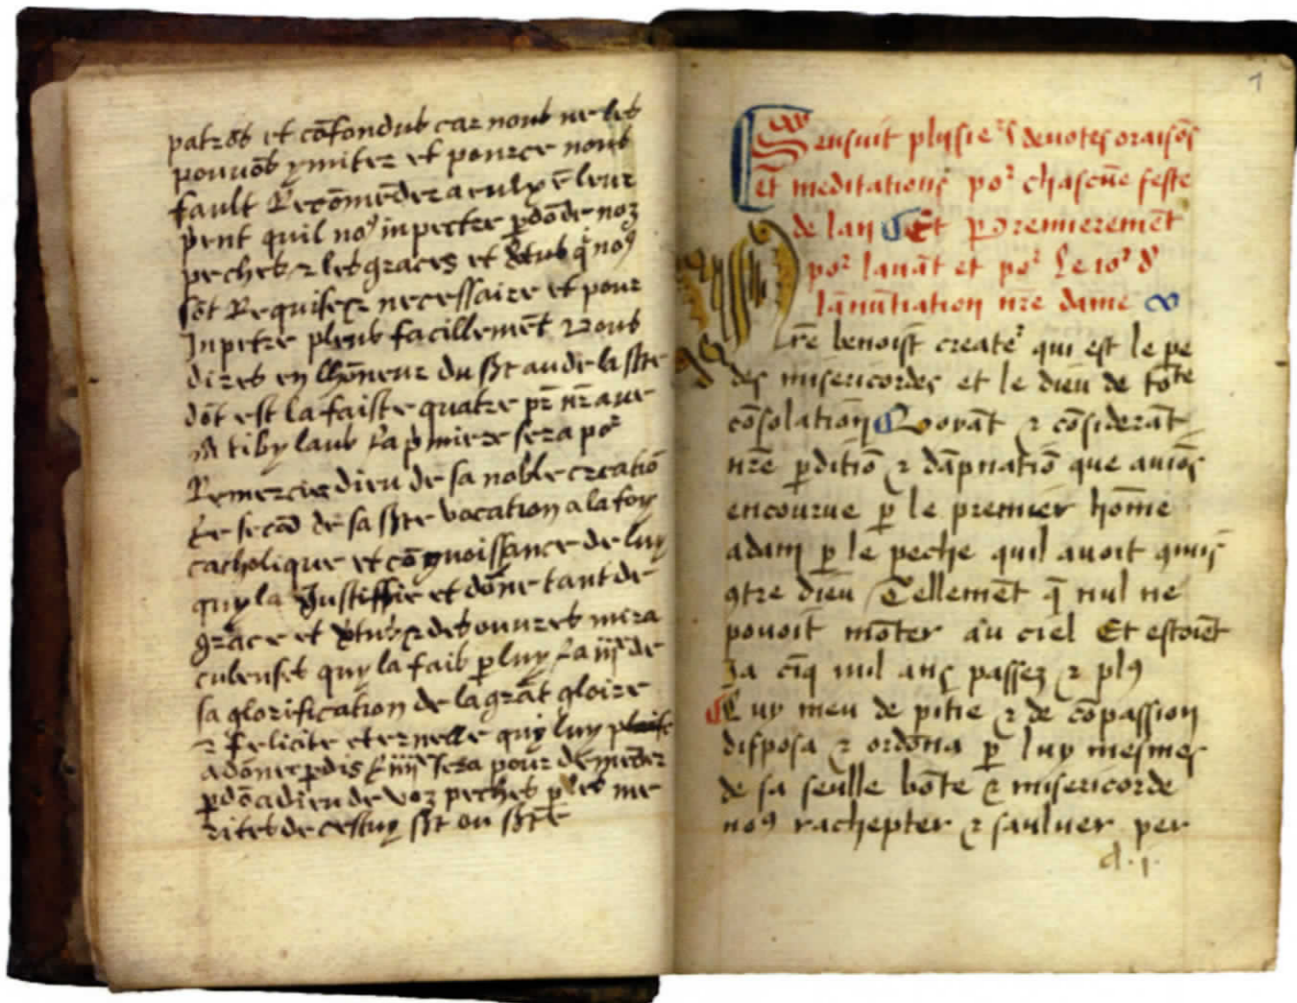 patrõs et cõfondus car nous ne les
pouuõs ymiter et pource nous
fault Recõmẽder a eulx ẽ leur
quil no⁹ inpectre p̱dõ de noz
peches ⁊ les graces et q̃ no⁹
sõt Requises ⁊ necessaire et pour
Inpetre plus facillemẽt Vous
dires en lhõneur du sĩt au de la sĩte
dõt est la faiste quatre
la p̃miere sera poʳ
Remercies dieu de sa noble creatiõ
Le secõd de sa sĩte vocation a la foy
catholique et cõgnoissance de luy
quy la Justiffie et dõne tant de
grace et des ouures mira
culeuses quy la fais p̱ luy La iijᵉ de
sa glorification de la grãt gloire
⁊ felicite eternelle quy luy
a dõne Sera pour demãder
p̱dõ a dieu de voz peches p̱ les me
rites de cestuy sĩt ou sĩte
1
Sensuit plusieʳs deuotes oraisõs
et meditations poʳ chascũe feste
de lan Et premieremẽt
poʳ lauãt et poʳ le ioʳ d
lãnũtiation nr̃e dame
benoist createʳ qui est le pe
des misericordes et le dieu de tote
cõsolation Voyãt ⁊ cõsiderãt
nr̃e p̱ditiõ ⁊ dãpnatiõ que auiõs
encourue p̱ le premier hõme
adam p̱ le peche quil auoit cõmis
ꝯtre dieu Tellemẽt q̃ nul ne
pouoit mõter au ciel Et estoiẽt
Ja cĩq mil ans passez ⁊ pl⁹
Luy meu de pitie ⁊ de cõpassion
disposa ⁊ ordõna p̱ luy mesmes
de sa seulle bõte ⁊ misericorde
no⁹ rachepter ⁊ sauluer per
d.j.